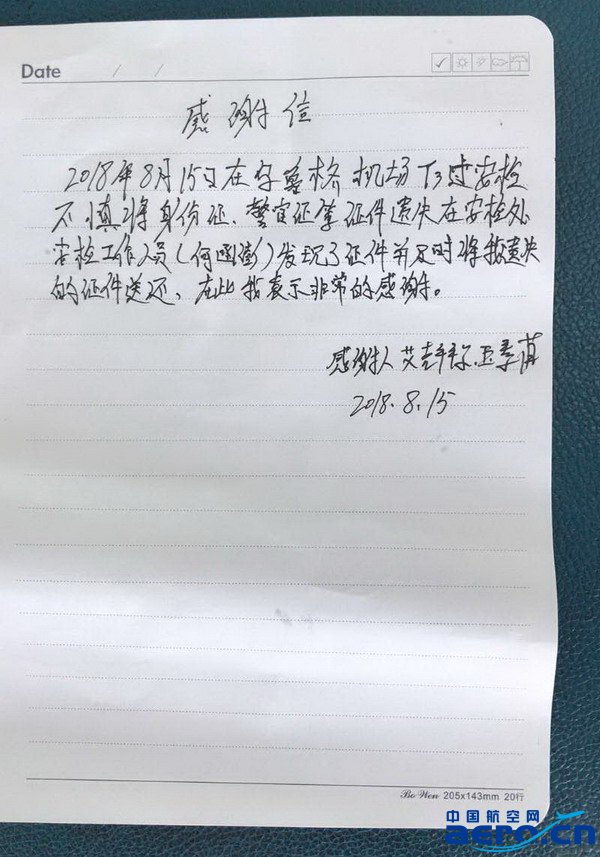 Date / /
感谢信
2018年8月15日在乌鲁木齐机场T3过安检
不慎将身份证、警官证等证件遗失在安检处
安检工作人员(何国彪)发现了证件并及时将我遗失
的证件送还、在此我表示非常的感谢。
感谢人 艾
2018.8.15
Bo Wen 205x143mm 20行
中国航空网
aero.cn